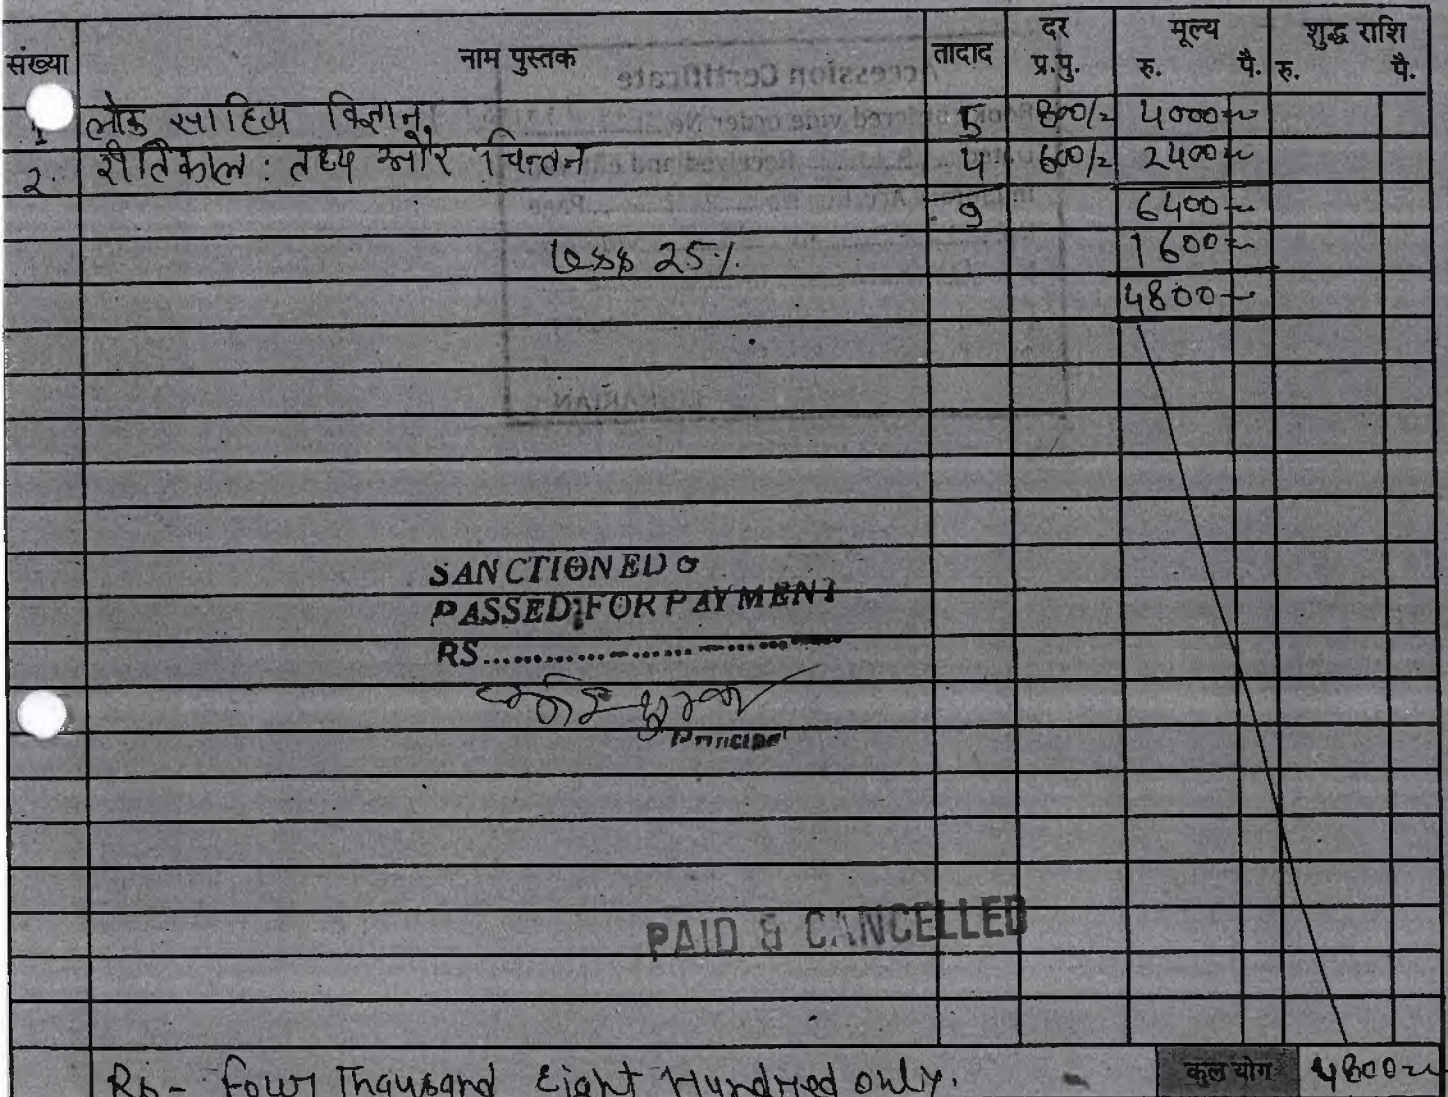 संख्या नाम पुस्तक तादाद दर प्र.पु. मूल्य रु. पै. शुद्ध राशि रु. पै.
1 लोक साहित्य विज्ञान 5 800/- 4000-
2. रीतिकाल : तथ्य और चिन्तन 4 600/- 2400-
9 6400-
Less 25% 1600-
4800-
SANCTIONED &
PASSED FOR PAYMENT
RS
Principal
PAID & CANCELLED
Rs- Four Thousand Eight Hundred only. कुल योग 4800-